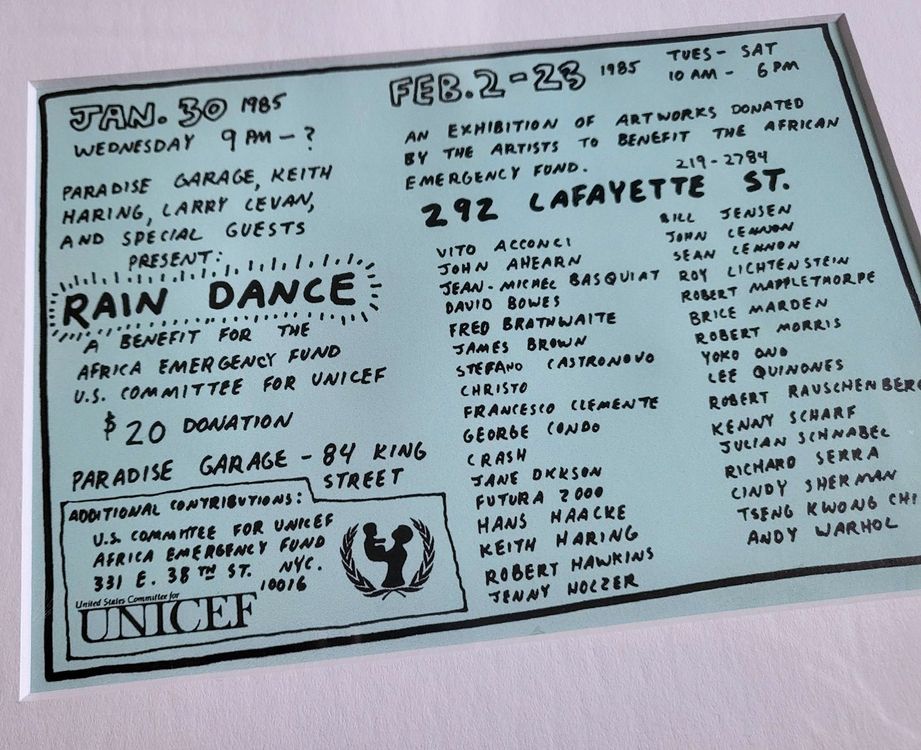 JAN. 30 1985
WEDNESDAY 9 PM - ?
PARADISE GARAGE, KEITH
HARING, LARRY LEVAN,
AND SPECIAL GUESTS
PRESENT:
RAIN DANCE
A BENEFIT FOR THE
AFRICA EMERGENCY FUND
U.S. COMMITTEE FOR UNICEF
$20 DONATION
PARADISE GARAGE - 84 KING
STREET
ADDITIONAL CONTRIBUTIONS:
U.S. COMMITTEE FOR UNICEF
AFRICA EMERGENCY FUND
331 E. 38TH ST. NYC.
10016
United States Committee for
UNICEF
FEB. 2-23 1985
TUES - SAT
10 AM - 6 PM
AN EXHIBITION OF ARTWORKS DONATED
BY THE ARTISTS TO BENEFIT THE AFRICAN
EMERGENCY FUND. 219-2784
292 LAFAYETTE ST.
VITO ACCONCI
JOHN AHEARN
JEAN-MICHEL BASQUIAT
DAVID BOWES
FRED BRATHWAITE
JAMES BROWN
STEFANO CASTRONOVO
CHRISTO
FRANCESCO CLEMENTE
GEORGE CONDO
CRASH
JANE DICKSON
FUTURA 2000
HANS HAACKE
KEITH HARING
ROBERT HAWKINS
JENNY HOLZER
BILL JENSEN
JOHN LENNON
SEAN LENNON
ROY LICHTENSTEIN
ROBERT MAPPLETHORPE
BRICE MARDEN
ROBERT MORRIS
YOKO ONO
LEE QUINONES
ROBERT RAUSCHENBERG
KENNY SCHARF
JULIAN SCHNABEL
RICHARD SERRA
CINDY SHERMAN
TSENG KWONG CHI
ANDY WARHOL